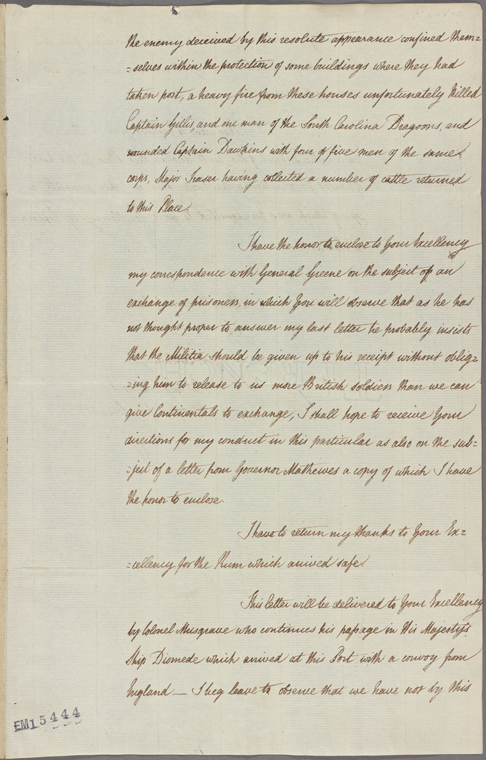 the enemy deceived by this resolute appearance confined them=
=selves within the protection of some buildings where they had
taken post, a heavy fire from these houses unfortunately killed
Captain Gillis, and one man of the South Carolina Dragoons, and
wounded Captain Dawkins with four or five men of the same
corps. Major Fraser having collected a number of cattle returned
to this Place.
I have the honor to enclose to Your Excellency
my correspondence with General Greene on the subject of an
exchange of prisoners, in which You will observe that as he has
not thought proper to answer my last letter he probably insists
that the Militia should be given up to his receipt without oblig=
=ing him to release to us more British soldiers than we can
give Continentals to exchange, I shall hope to receive Your
directions for my conduct in this particular as also on the sub=
=ject of a letter from Governor Mathewes a copy of which I have
the honor to enclose
I have to return my thanks to Your Ex=
=cellency for the Rum which arrived safe.
This letter will be delivered to Your Excellency
by Colonel Musgrave who continues his passage in His Majesty's
Ship Diomede which arrived at this Port with a convoy from
England — I beg leave to observe that we have not by this
EM15444